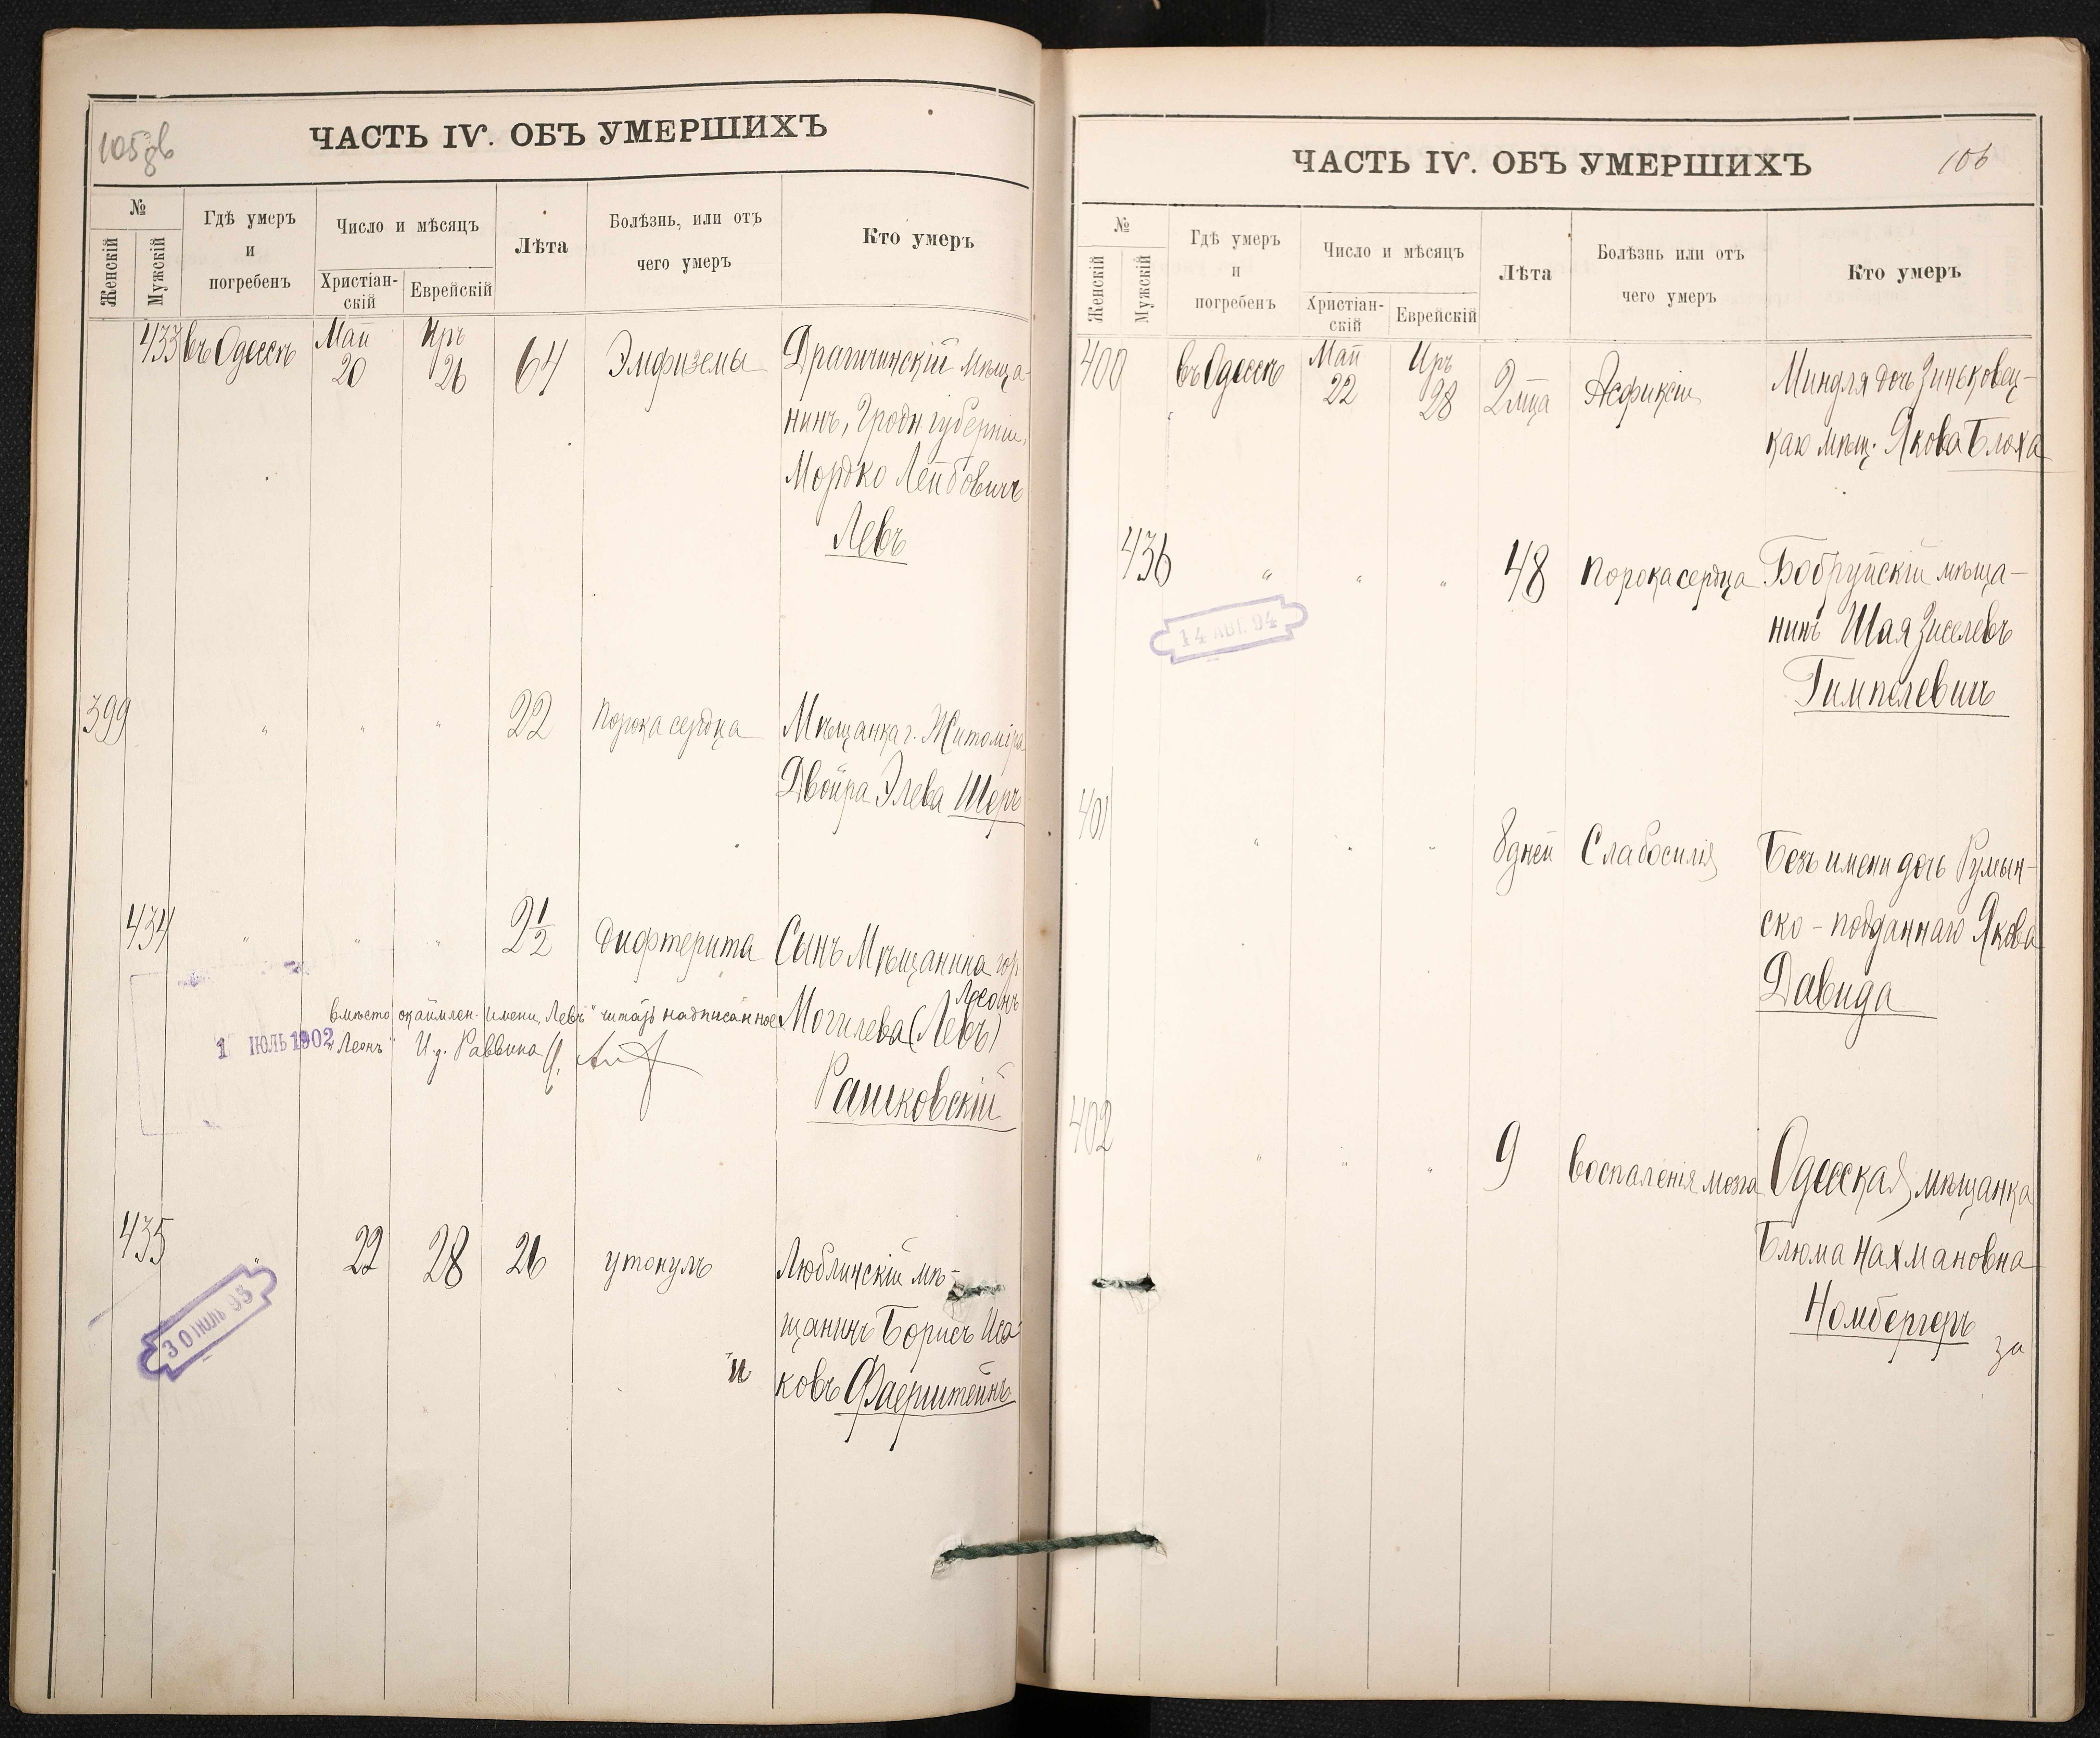 105 об
ЧАСТЬ IV. ОБЪ УМЕРШИХЪ
№
Женскій
Мужскій
Гдѣ умеръ
и
погребенъ
Число и мѣсяцъ
Христіан-
скій
Еврейскій
Лѣта
Болѣзнь, или отъ
чего умеръ
Кто умеръ
433 въ Одессѣ Май 20 Иръ 26 64 Эмфиземы Драгичинскій мѣща-
нинъ, Гродн губерніи,
Мордко Лейбовичъ
Левъ
399 " " " 22 Порока сердца Мѣщанка г. Житоміра
Двойра Элева Шеръ
434 " " " 2 1/2 Дифтерита Сынъ Мѣщанина гор
Леонъ
Могилева (Левъ)
Рашковскій
вмѣсто окаймлен. имени "Левъ" читать надписанное
"Леонъ" И. д. Раввина
1 ІЮЛЬ 1902
435 " 22 28 26 утонулъ Люблинскій мѣ-
щанинъ Борисъ Иса-
ковъ Фаерштейнъ
30 ІЮЛЬ 95
"и
ЧАСТЬ IV. ОБЪ УМЕРШИХЪ
106
№
Женскій
Мужскій
Гдѣ умеръ
и
погребенъ
Число и мѣсяцъ
Христіан-
скій
Еврейскій
Лѣта
Болѣзнь или отъ
чего умеръ
Кто умеръ
400 въ Одессѣ Май 22 Иръ 28 2 мца Асфиксіи Миндля дочь Зиньковец-
каго мѣщ. Якова Блоха
436 " " " 48 Порока сердца Бобруйскій мѣща-
нинъ Шая Зиселевъ
Гимпелевичъ
14 АВГ. 94
401 " " " 8 дней Слабосилія Безъ имени дочь Румын-
ско-подданнаго Якова
Давида
402 " " " 9 Воспаленія мозга Одесская мѣщанка
Блюма Нахмановна
Номбергеръ
за